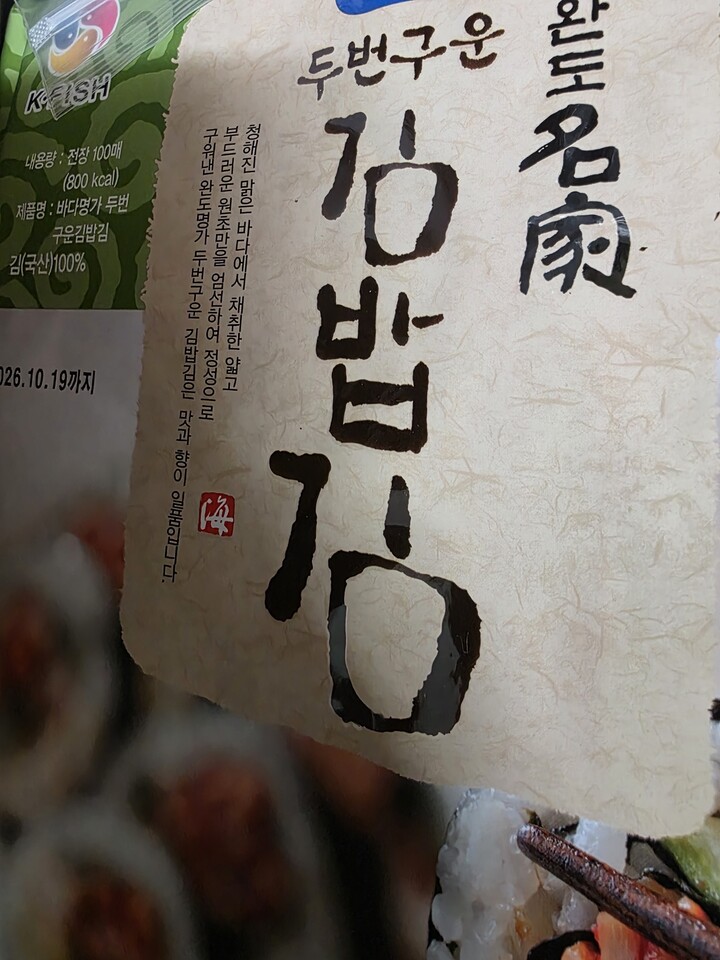 K·FISH
내용량 : 전장 100매
(800 kcal)
제품명 : 바다명가 두번
구운김밥김
김(국산)100%
026.10.19까지
완도名家
두번구운
김밥김
청해진 맑은 바다에서 채취한 얇고
부드러운 원초만을 엄선하여 정성으로
구워낸 완도명가 두번구운 김밥김은 맛과 향이 일품입니다.
海